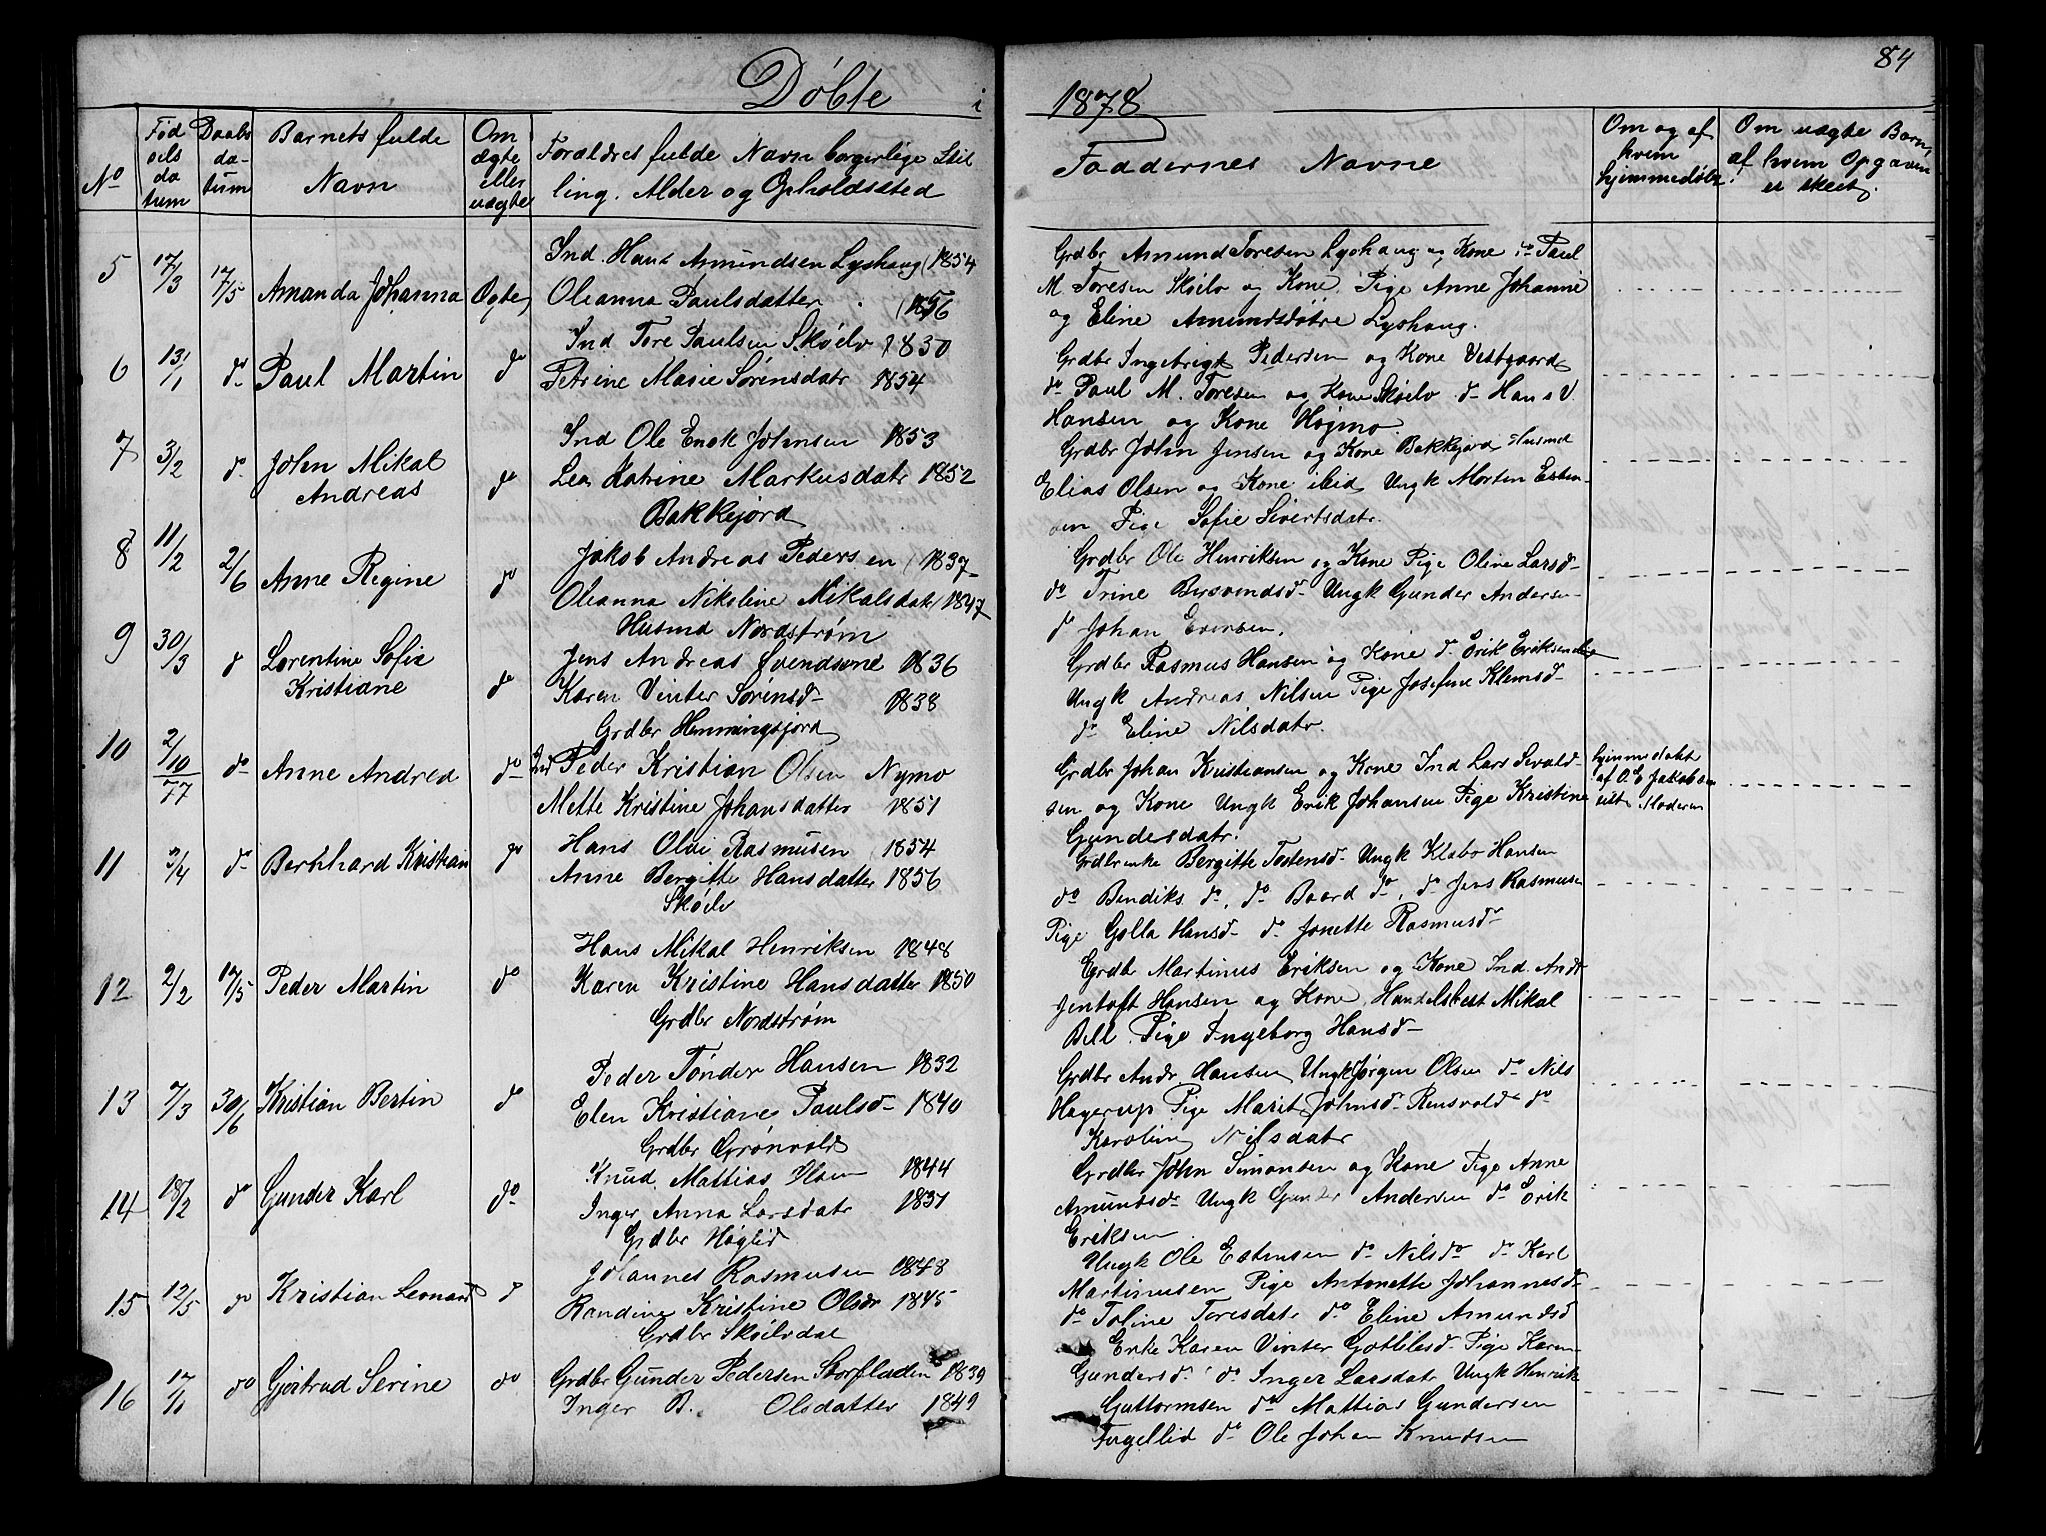 84
Døbte i 1878
No
Fød
sels
da
tum
Daabs
da-
tum
Barnets fulde
Navn
Om
ægte
eller
uægte
Forældres fulde Navn borgerlige Stil
ling. Alder og Opholdssted
Faddernes Navne
Om og af
hvem
hjemmedøbt
Om uægte Børn,
af hvem Opgaven
er skeet.
5 17/3 17/5 Amanda Johanna Ægte
Ind. Hans Amundsen Lyshaug 1854
Oleanna Paulsdatter 1856
Grdbr Amund Toresen Lyshaug og Kone do Paul
M. Toresen Skøelv og Kone, Pige Anne Johanne
og Eline Amundsdøtre Lyshaug.
6 13/1 do Paul Martin do
Ind Tore Paulsen Skøelv 1830
Petrine Marie Sørensdatr 1854
Grdbr Ingebrigt Pedersen og Kone Vestgaard
do Paul M. Toresen og Kone Skøelv do Hans V.
Hansen og Kone Høgmo
7 3/2 do John Mikal
Andreas do
Ind Ole Enok Johnsen 1853
Lea Katrine Markusdatr 1852
Bakkejord
Grdbr John Jensen og Kone Bakkejord Husmd
Elias Olsen og Kone ibid Ungk Morten Esten-
sen Pige Sofie Sivertsdatr.
8 11/2 2/6 Anne Regine do
Jakob Andreas Pedersen 1837
Oleanna Nikoline Mikalsdatr 1847
Husmd Nordstrøm
Grdbr Ole Henriksen og Kone Pige Oline Larsd-
do Trine Bersvendsd- Ungk Gunder Andersen-
do Johan Eversen.
9 30/3 do Lorentine Sofie
Kristiane do
Jens Andreas Svendsen 1836
Karen Vinter Sørensd- 1838
Grdbr Hemmingsjord
Grdbr Rasmus Hansen og Kone do Erik Eriksen
Ungk Andreas Nilsen Pige Josefine Klemsd-
do Eline Nilsdatr.
10 2/10 77 do Anne Andrea do
Ind Peder Kristian Olsen Nymo
Mette Kristine Johansdatter 1851
Grdbr Johan Kristiansen og Kone Ind Lars Sivald-
sen og Kone Ungk Erik Johansen Pige Kristine
Gundersdatr.
hjemmedøbt
af O. E. Jakobsen
Moderen
11 3/4 do Bernhard Kristian do
Hans Olai Rasmusen 1854
Anne Bergitte Hansdatter 1856
Skøelv
Grdbrenke Bergitte Tostensd- Ungk Klabo Hansen
do Bendiks do, do Baard do, do Jens Rasmusen
Pige Golla Hansd- do Jonette Rasmusd-
12 2/2 17/5 Peder Martin do
Hans Mikal Henriksen 1848
Karen Kristine Hansdatter 1850
Grdbr Nordstrøm
Grdbr Martinus Eriksen og Kone Ind. Andr
Jentoft Hansen og Kone, Handelsbest Mikal
Bell. Pige Ingeborg Hansd-
13 7/3 30/6 Kristian Bertin do
Peder Tønder Hansen 1832
Elen Kristiane Paulsd- 1840
Grdbr Grønvold
Grdbr Andr Hansen Ungk Jørgen Olsen do Nils
Hagerup Pige Marit Johnsd- Rensvold do
Karoline Nilsdatr
14 18/2 do Gunder Karl do
Knud Mattias Olsen 1844
Inger Anna Larsdatr 1837
Grdbr Høglid
Grdbr John Simonsen og Kone Pige Anne
Amundsd- Ungk Gunder Andersen do Erik
Eriksen
15 12/5 do Kristian Leonard do
Johannes Rasmusen 1848
Randine Kristine Olsdr 1845
Grdbr Skøelvdal
Ungk Ole Estensen do Nils do do Karl
Martinusen Pige Antonette Johannesd-
do Toline Toresdatr do Eline Amundsd
16 17/1 do Gjertrud Serine do
Grdbr Gunder Pedersen Storfladen 1839
Inger B. Olsdatter 1849
Enke Karen Vinter Gotliebsd- Pige Karen
Gundersd- do Inger Larsdatr Ungk Henrik
Guttormsen do Mattias Gundersen
Fugellid do Ole Johan Knudsen